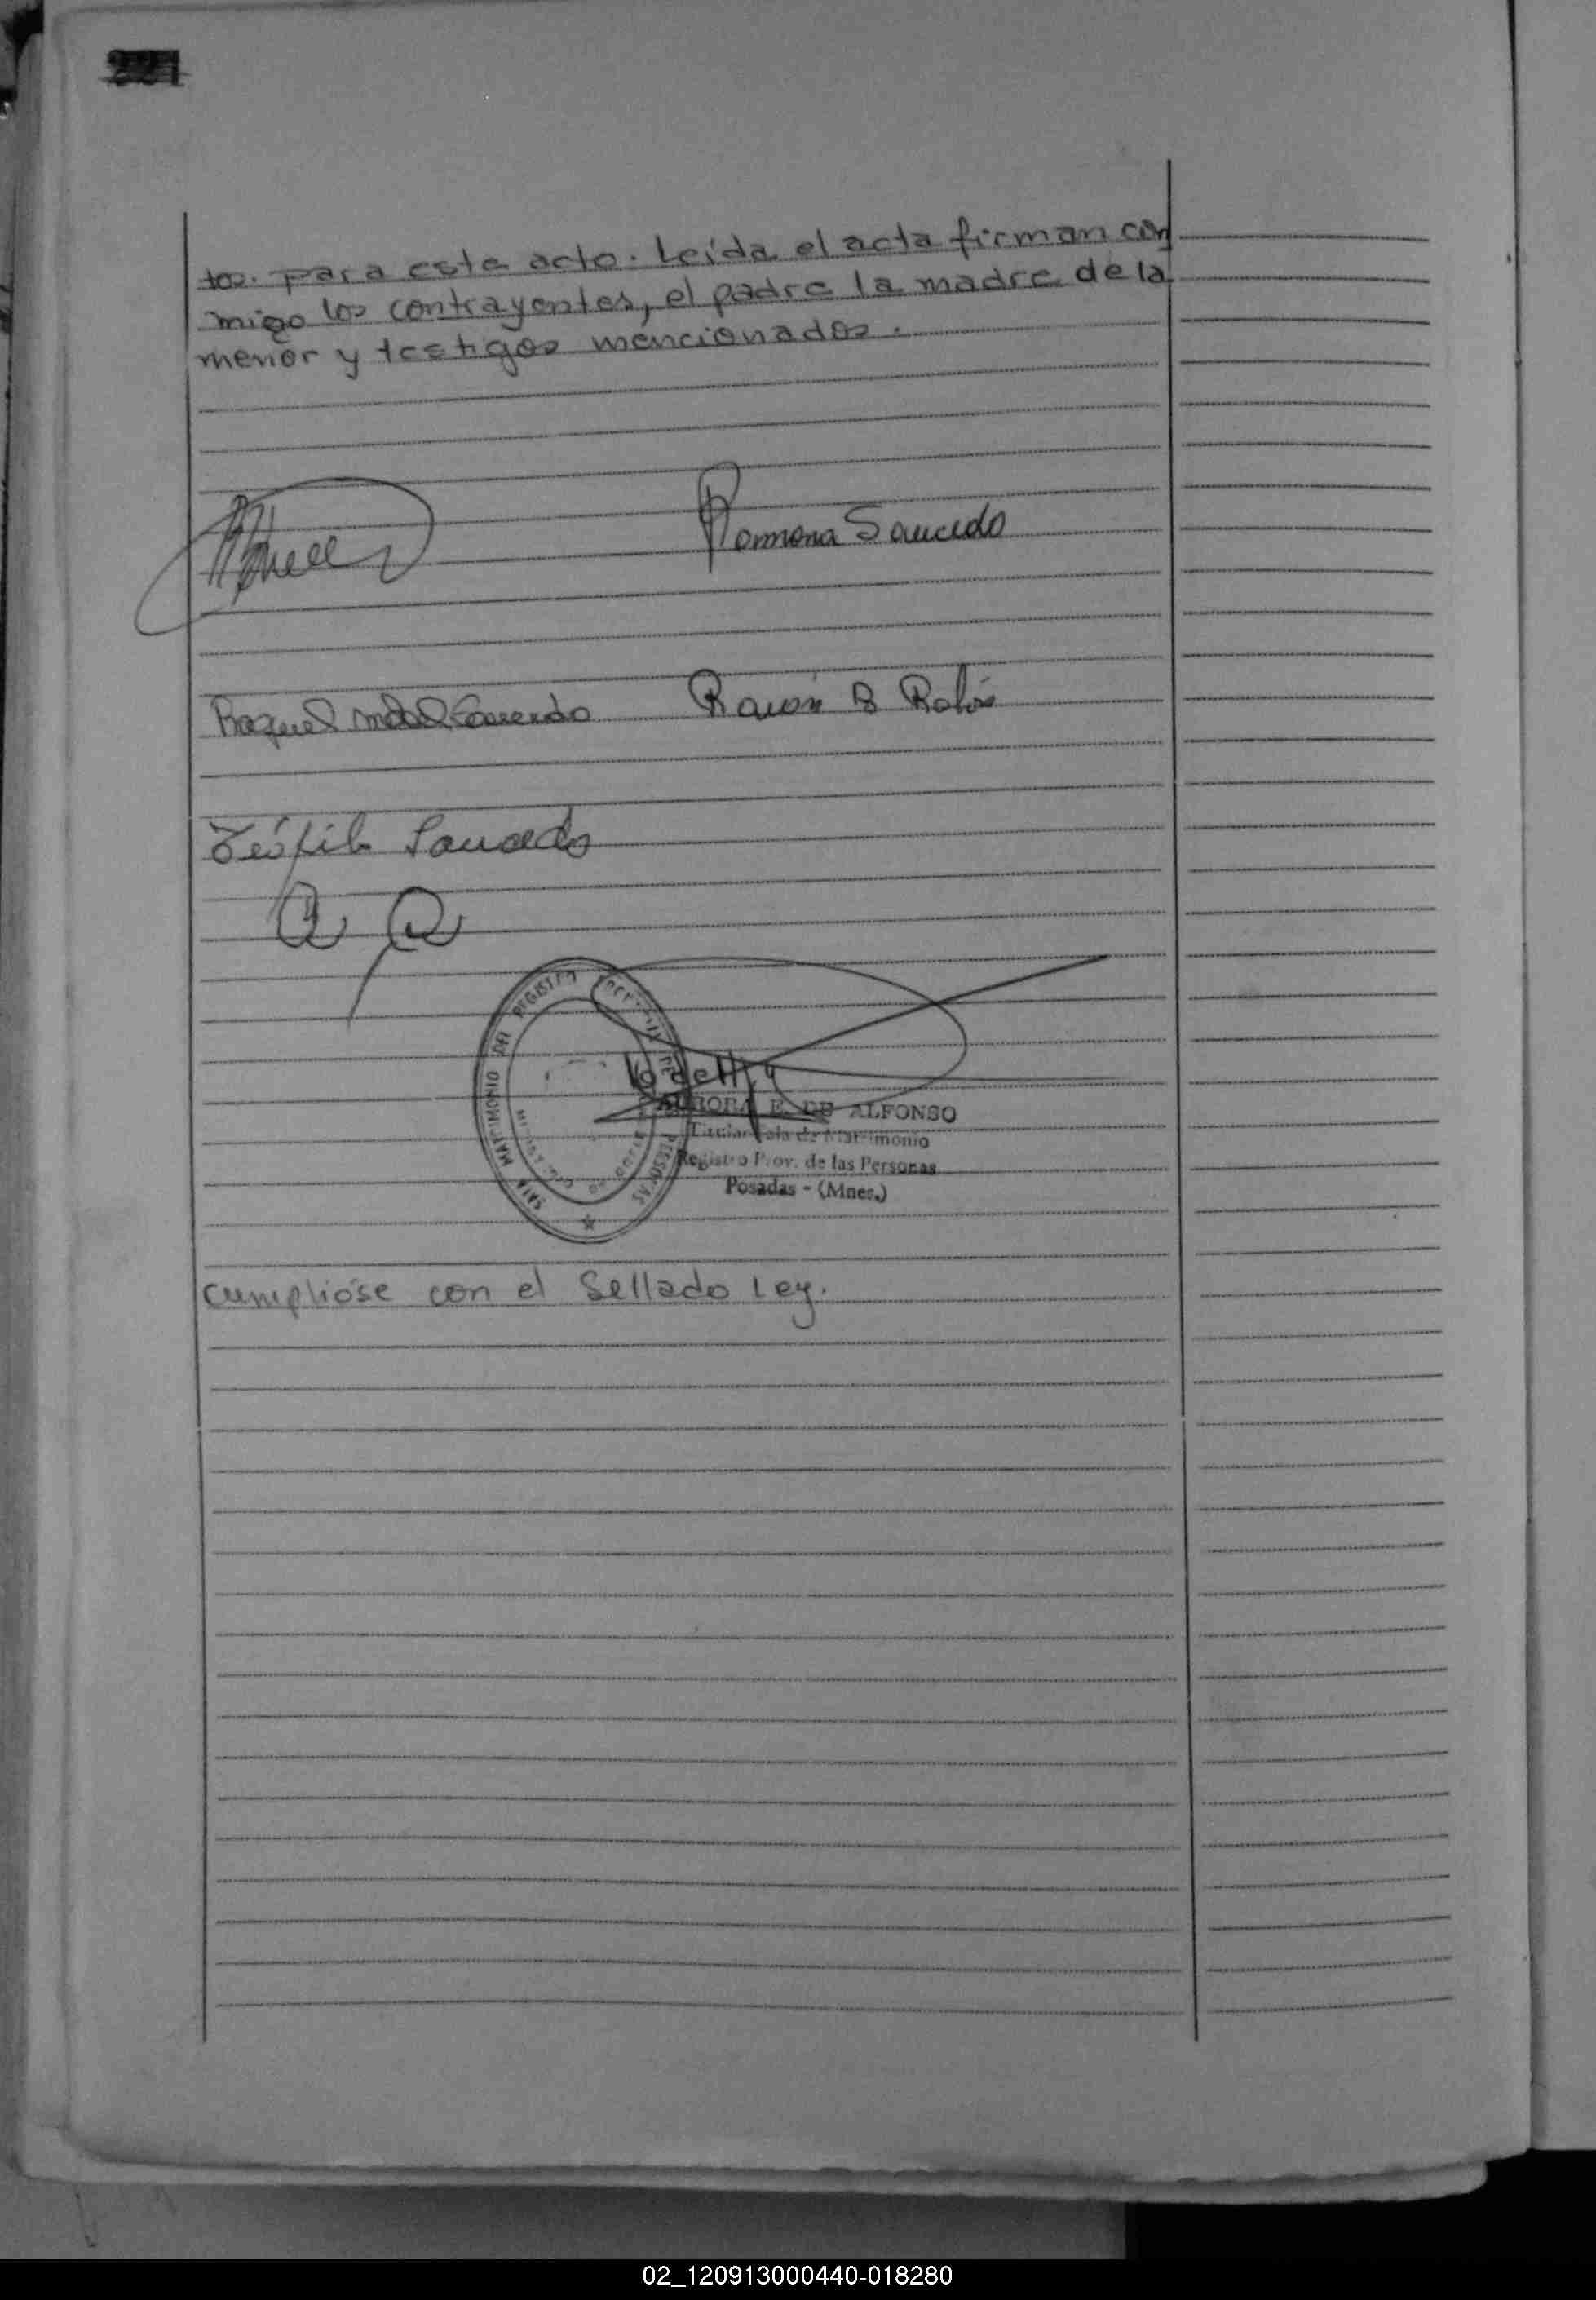 tos. para este acto. Leída el acta firman con
migo los contrayentes, el padre la madre de la
menor y testigos mencionados.
Ramona Saucedo
Raquel Saucedo Ramón B
Teófilo Saucedo
SALA MATRIMONIO DEL REGISTRO PERSONAS
AURORA E. DE ALFONSO
Titular Sala de Matrimonio
Registro Prov. de las Personas
Posadas - (Mnes.)
Cumplióse con el Sellado Ley.
02_120913000440-018280